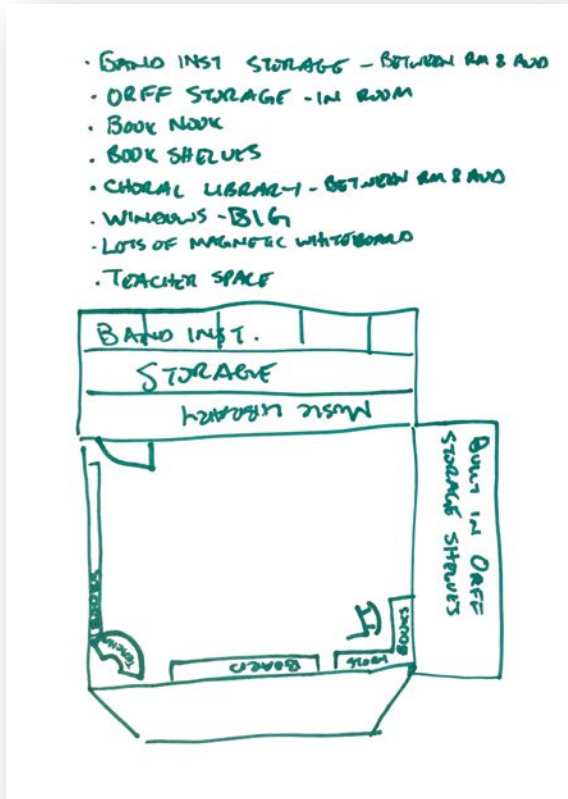 · BAND INST STORAGE - BETWEEN RM & AUD
· ORFF STORAGE - IN ROOM
· BOOK NOOK
· BOOK SHELVES
· CHORAL LIBRARY - BETWEEN RM & AUD
· WINDOWS - BIG
· LOTS OF MAGNETIC WHITEBOARD
· TEACHER SPACE
BAND INST.
STORAGE
MUSIC LIBRARY
BUILT IN ORFF
STORAGE SHELVES
TEACHER
BOARD
BOOKS